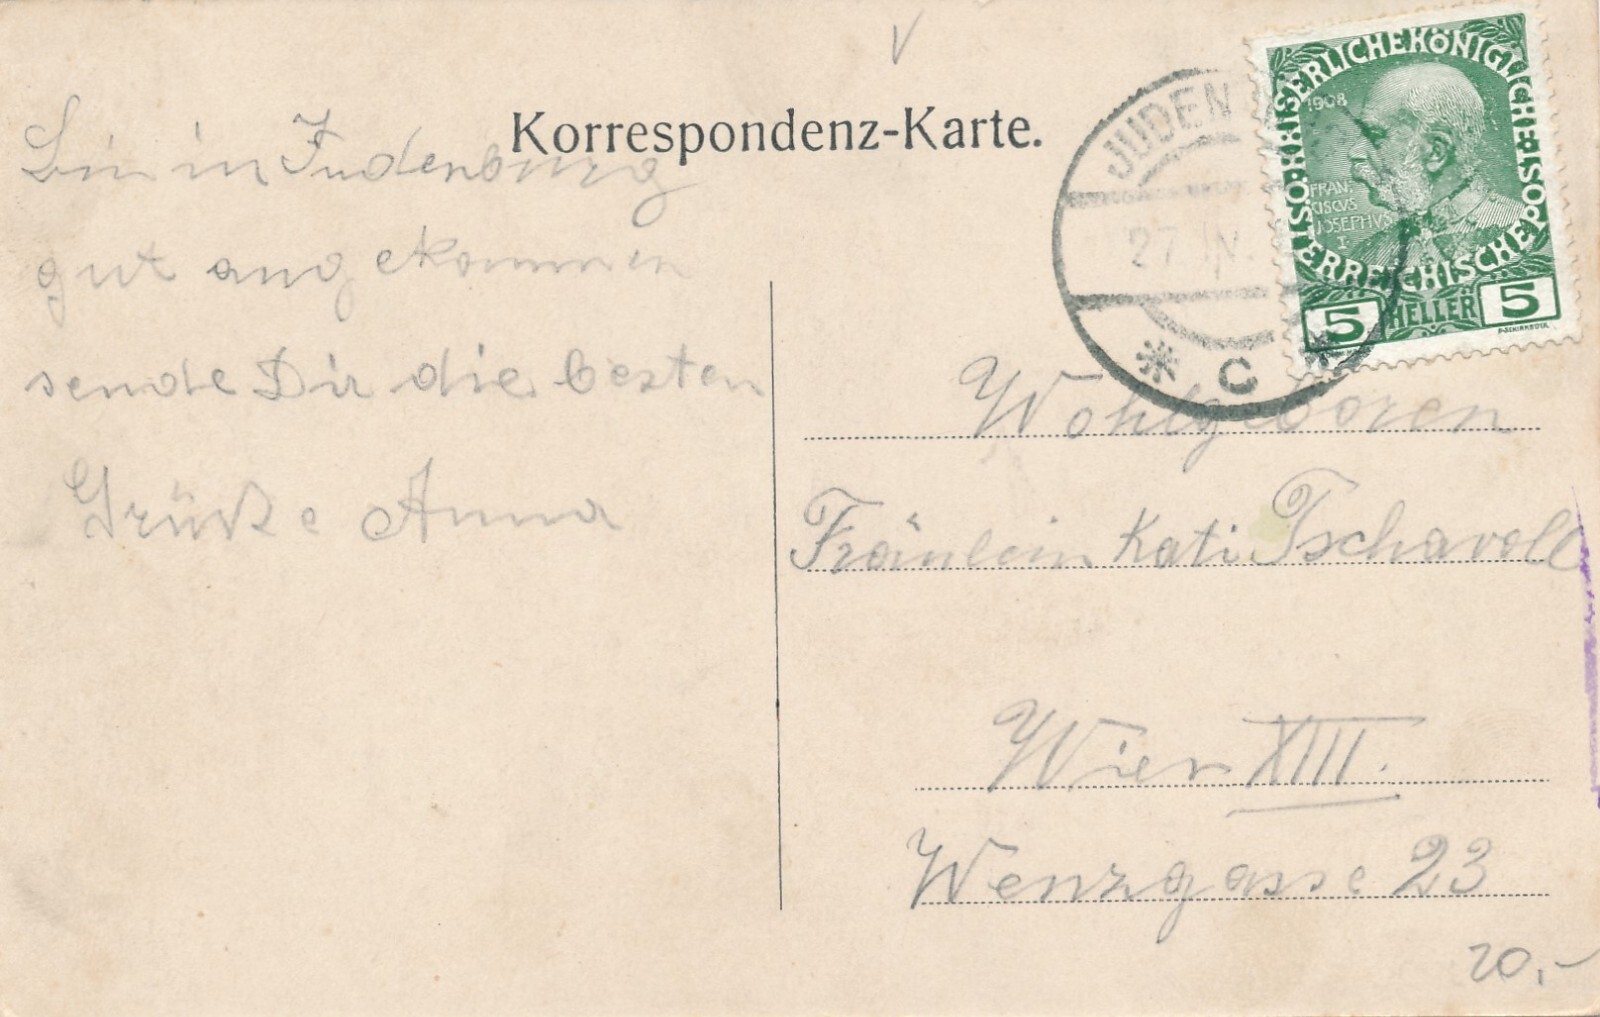 Korrespondenz-Karte.
Bin in Judenburg
gut angekommen
sende Dir die besten
Grüße Anna
JUDEN
27 IV.
* C *
KAISERLICHE KÖNIGLICHE ÖSTERREICHISCHE POST
1908
FRAN-
CISCVS
JOSEPHVS
I
5 HELLER 5
Wohlgeboren
Fräulein Kati Tschavoll
Wien XIII.
Wenzgasse 23
20,-